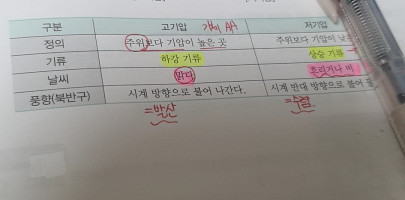 구분 고기압 저기압
정의 주위보다 기압이 높은 곳 주위보다 기압이 낮은
기류 하강 기류 상승 기류
날씨 맑다 흐리거나 비
풍향(북반구) 시계 방향으로 불어 나간다. 시계 반대 방향으로 불어
=발산 =수렴